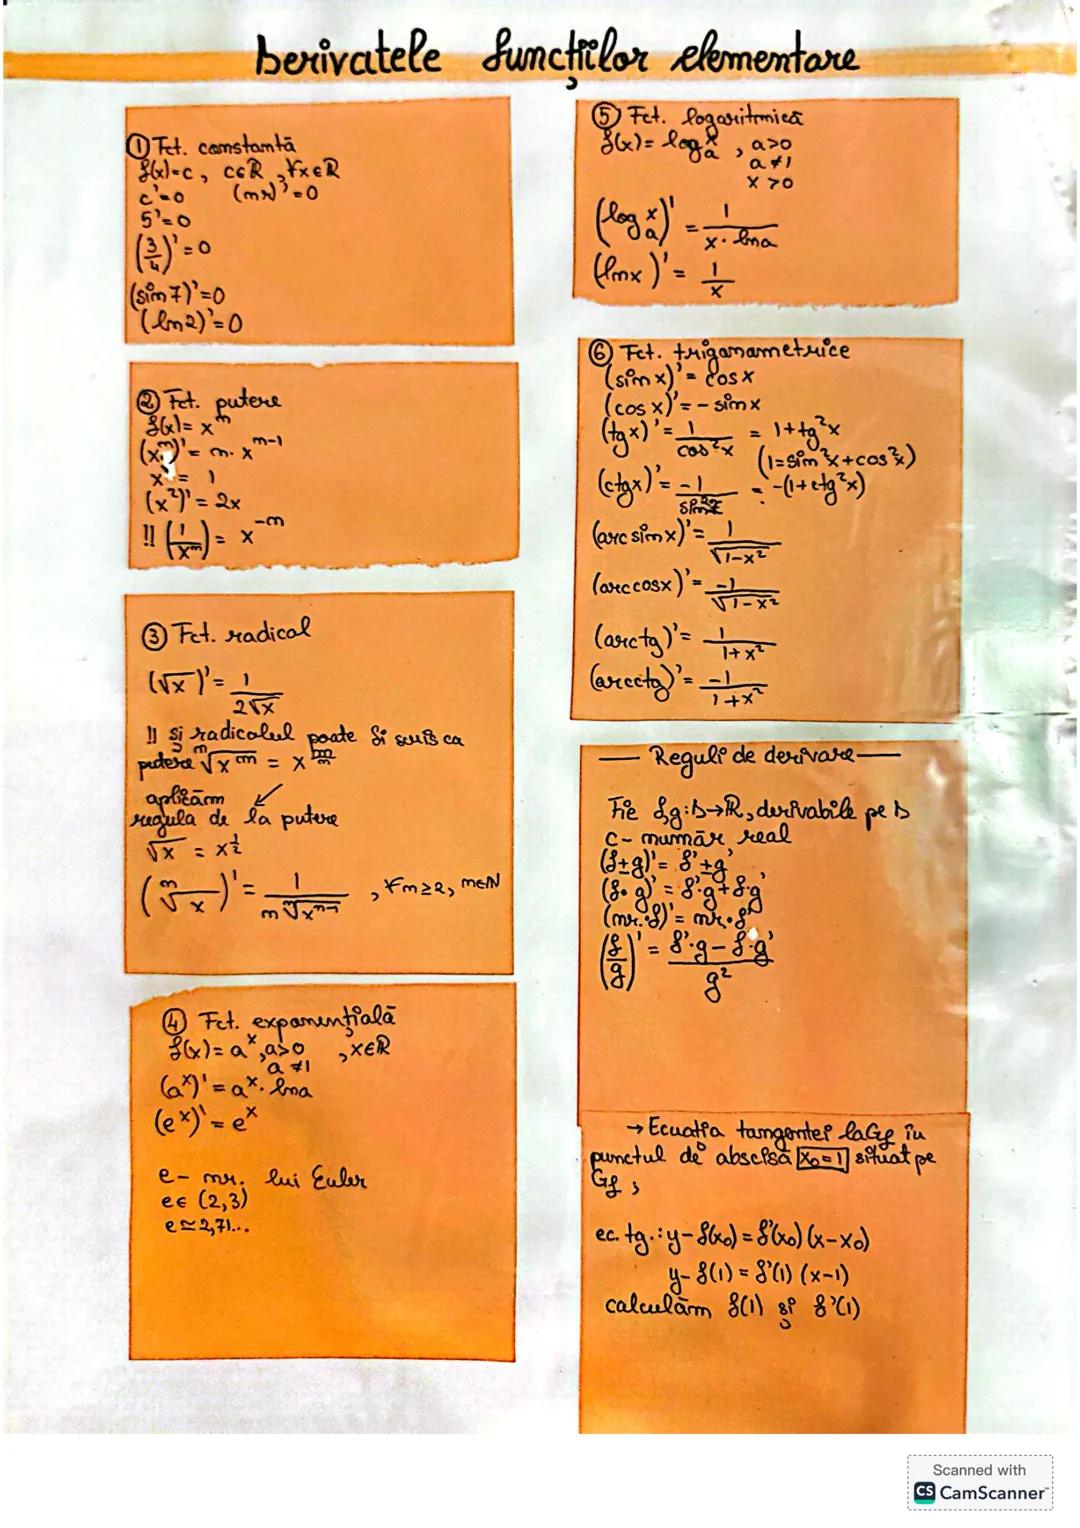 Derivatele funcțiilor elementare
① Fct. constantă
f(x)=c, c∈R, ∀x∈R
c'=0 (nr)'=0
5'=0
(3/4)'=0
(sin 7)'=0
(ln 2)'=0
② Fct. putere
f(x)= xⁿ
(xⁿ)'= n·xⁿ⁻¹
x' = 1
(x²)' = 2x
!! (1/xⁿ) = x⁻ⁿ
③ Fct. radical
(√x)' = 1/(2√x)
!! și radicalul poate fi scris ca
putere ⁿ√xᵐ = x^(m/n)
aplicăm ↙
regula de la putere
√x = x^½
(ⁿ√x)' = 1/(n ⁿ√xⁿ⁻¹), ∀n≥2, n∈N
④ Fct. exponențială
f(x)= aˣ, a>0, x∈R
a≠1
(aˣ)' = aˣ·lna
(eˣ)' = eˣ
e- nr. lui Euler
e∈ (2,3)
e≃2,71...
⑤ Fct. logaritmică
f(x)= logₐx, a>0
a≠1
x>0
(logₐx)' = 1/(x·lna)
(lnx)' = 1/x
⑥ Fct. trigonometrice
(sin x)' = cos x
(cos x)' = - sin x
(tgx)' = 1/cos²x = 1+tg²x
(1=sin²x+cos²x)
(ctgx)' = -1/sin²x = -(1+ctg²x)
(arcsin x)' = 1/√(1-x²)
(arccosx)' = -1/√(1-x²)
(arctg)' = 1/(1+x²)
(arcctg)' = -1/(1+x²)
— Reguli de derivare —
Fie f,g:D→R, derivabile pe D
c- număr real
(f±g)' = f'±g'
(f·g)' = f'·g+f·g'
(nr.·f)' = nr·f'
(f/g)' = (f'·g-f·g')/g²
→ Ecuația tangentei la Gf în
punctul de abscisă x₀=1 situat pe
Gf;
ec. tg.: y-f(x₀) = f'(x₀)(x-x₀)
y-f(1) = f'(1) (x-1)
calculăm f(1) și f'(1)
Scanned with
CS CamScanner™